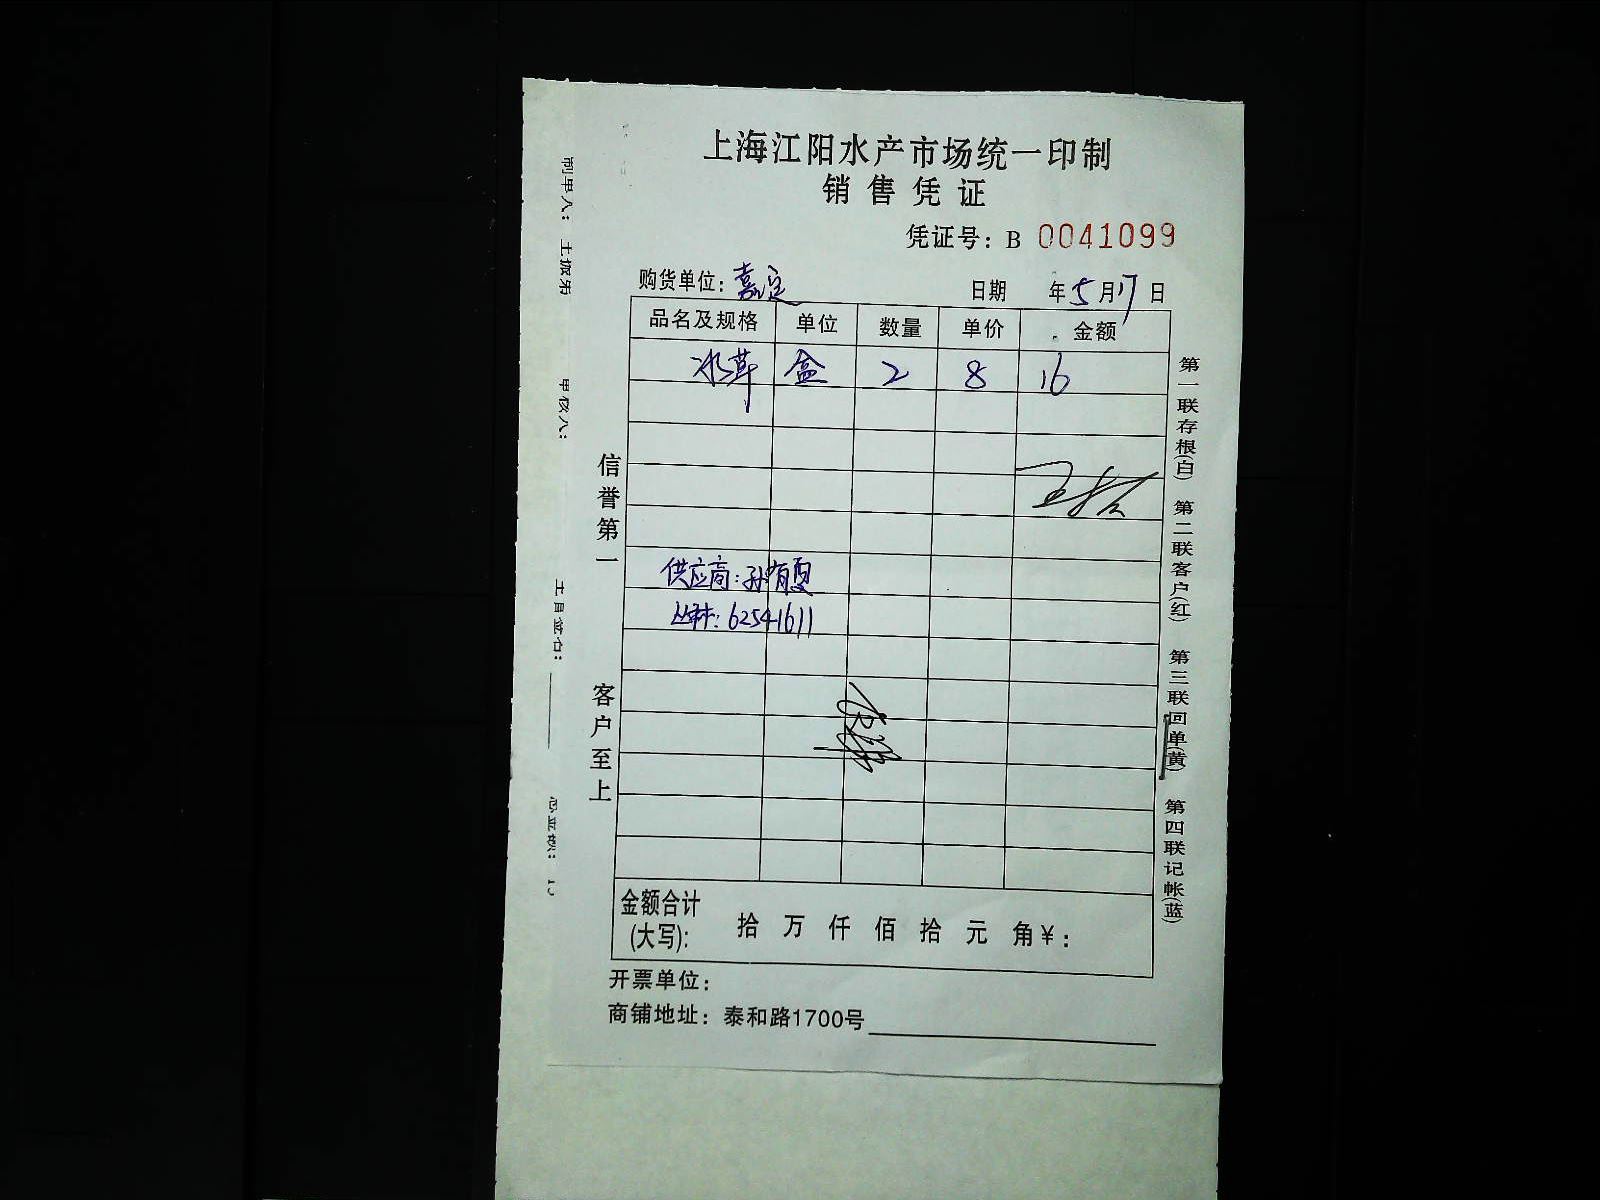 上海江阳水产市场统一印制
销售凭证
凭证号：B 0041099
购货单位：嘉定 日期 年5月17日
品名及规格 单位 数量 单价 金额
冰草 盒 2 8 16
供应商：孙有夏
62541611
金额合计(大写)： 拾 万 仟 佰 拾 元 角￥：
开票单位：
商铺地址：泰和路1700号
信誉第一
客户至上
第一联存根(白) 第二联客户(红) 第三联回单(黄) 第四联记帐(蓝)